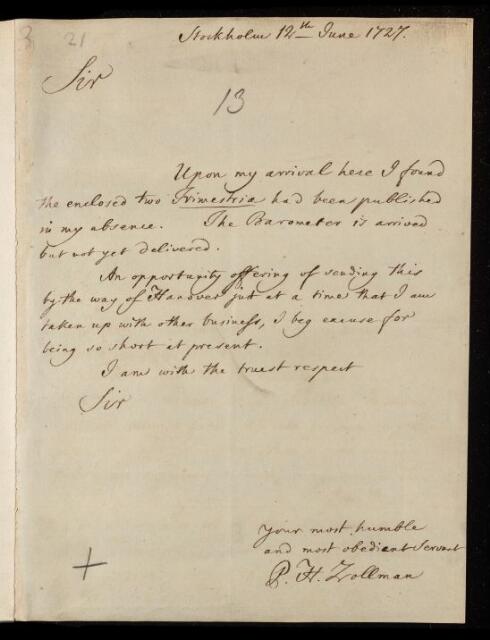 3 21
Stockholm 12th June 1727.
Sir
13
Upon my arrival here I found
the enclosed two Trimestria had been published
in my absence. The Barometer is arrived
but not yet delivered.
An opportunity offering of sending this
by the way of Hanover just at a time that I am
taken up with other business, I beg excuse for
being so short at present.
I am with the truest respect
Sir
your most humble
and most obedient Servant
P. H. Zollman
+